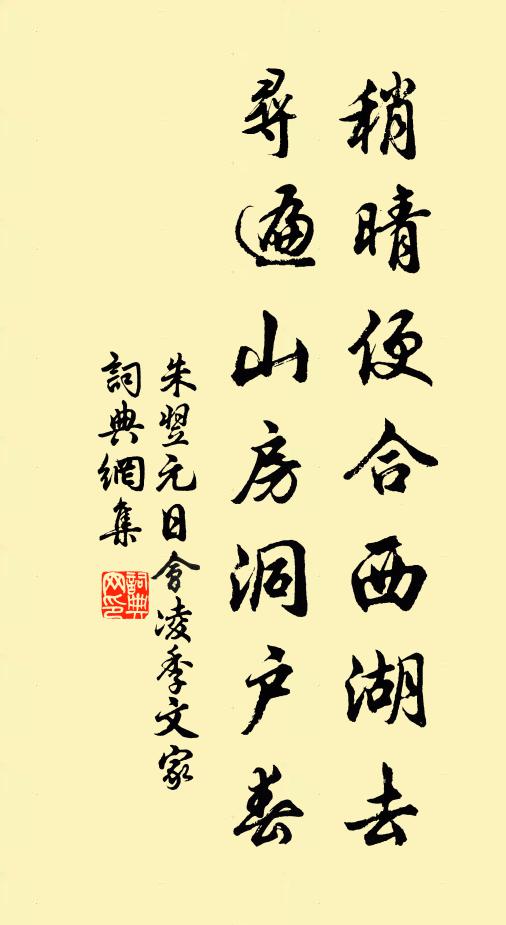 稍晴便合西湖去
尋遍山房洞户春
朱翌元日會凌季文家
詞典網集
詞典网印